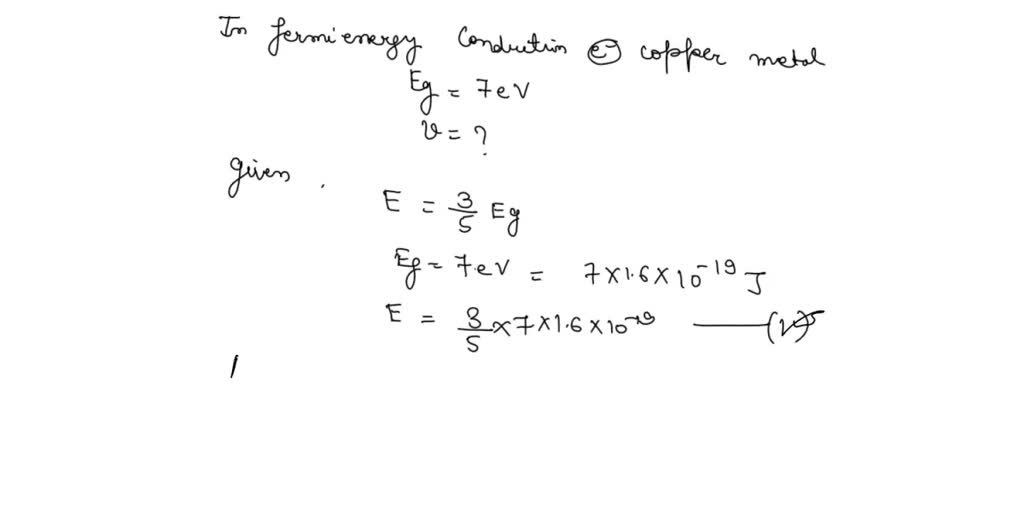 In fermi energy Conduction e⁻ copper metal
Eg = 7eV
v = ?
given .
E = 3/5 Eg
Eg = 7eV = 7×1.6×10⁻¹⁹ J
E = 3/5 ×7×1.6×10⁻¹⁹